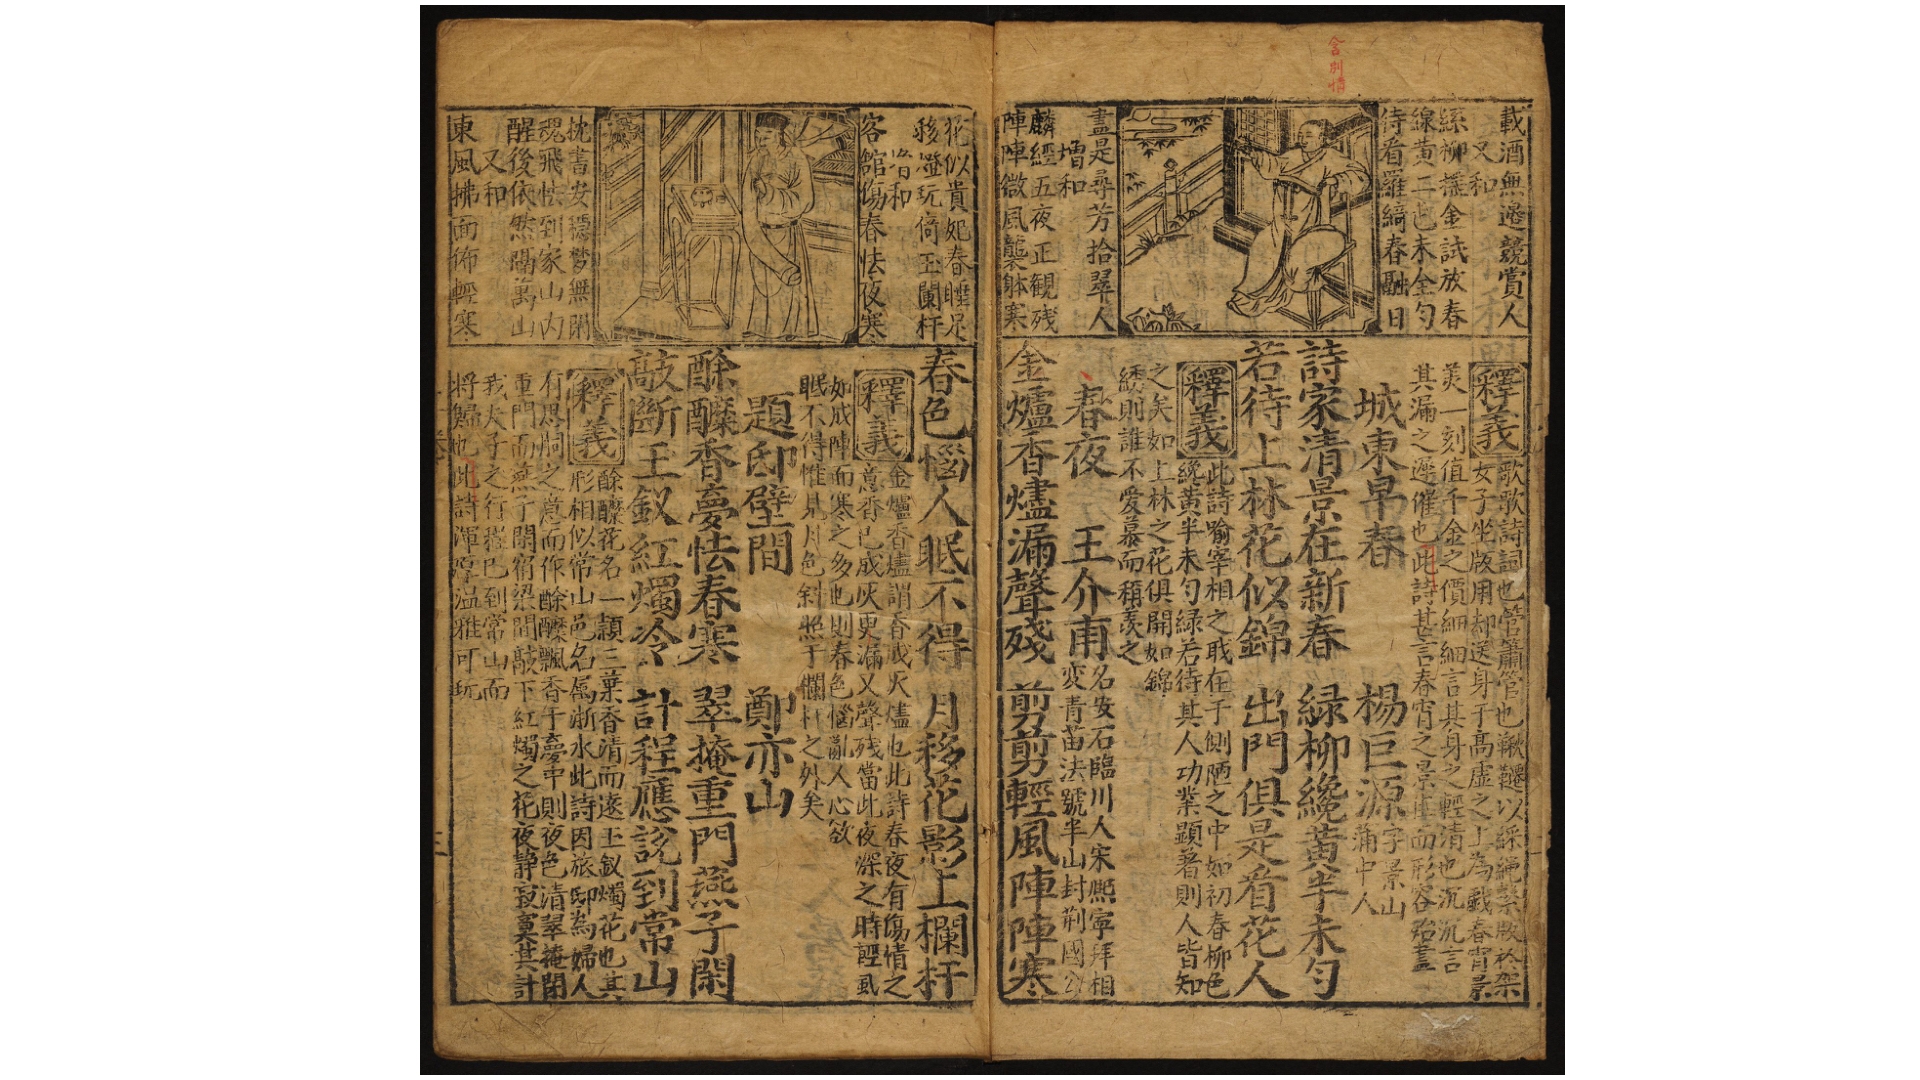 含別情
載酒無邊競賞人
又和
絲柳搖金試放春
線黃二已未全勻
待看羅綺春融日
盡是尋芳拾翠人
增和
麟經五夜正観残
陣陣微風襲躰寒
釋義
歌歌詩詞也管簫管也鞦韆以綵繩禁版於架
女子坐版用却送身于高虛之上為戱春宵景
羙一刻值千金之價細細言其身之輕清也沉沉言
其漏之遲催也此詩其言春宵之景
城東早春 楊巨源
字景山
蒲中人
詩家清景在新春 緑柳纔黃半未勻
若待上林花似錦 出門俱是看花人
釋義
此詩喻宰相之職在于側陋之中如初春柳色
纔黃半未勻緑若待其人功業顯著則人皆知
之矣如上林之花俱開如錦
綉則誰不愛慕而稱羨之
春夜 王介甫
名安石臨川人宋熈寕拜相
変青苗法號半山封荆國公
金爐香燼漏聲殘 剪剪輕風陣陣寒
花似貴妃春睡足
移燈玩倚玉闌杆
增和
客館傷春怯夜寒
枕書安穩夢無闌
魂飛怯到家山內
醒後依然隔萬山
又和
東風拂面佈輕寒
春色惱人眠不得 月移花影上欄杆
釋義
金爐香燼謂香成灰儘也此詩春夜有傷情之
意香已成灰更漏又聲残當此夜深之時輕風
如成陣而寒之多也則春色惱亂人心欲
眠不得惟見月色斜照于欄杆之外矣
題邸壁間 鄭亦山
酴醿香夢怯春寒 翠掩重門燕子閑
敲斷玉釵紅燭冷 計程應說到常山
釋義
酴醿花名一穎三葉香清而遠玉釵燭花也其
形相似常山邑名屬浙水此詩因旅邸為婦人
有思嗣之意而作酴醿飄香于夢中則夜色清翠掩閉
重門而燕子閒宿梁間敲下紅燭之花夜静寂寞其計
我夫子之行程已到常山而
將歸也此詩渾厚温雅可玩